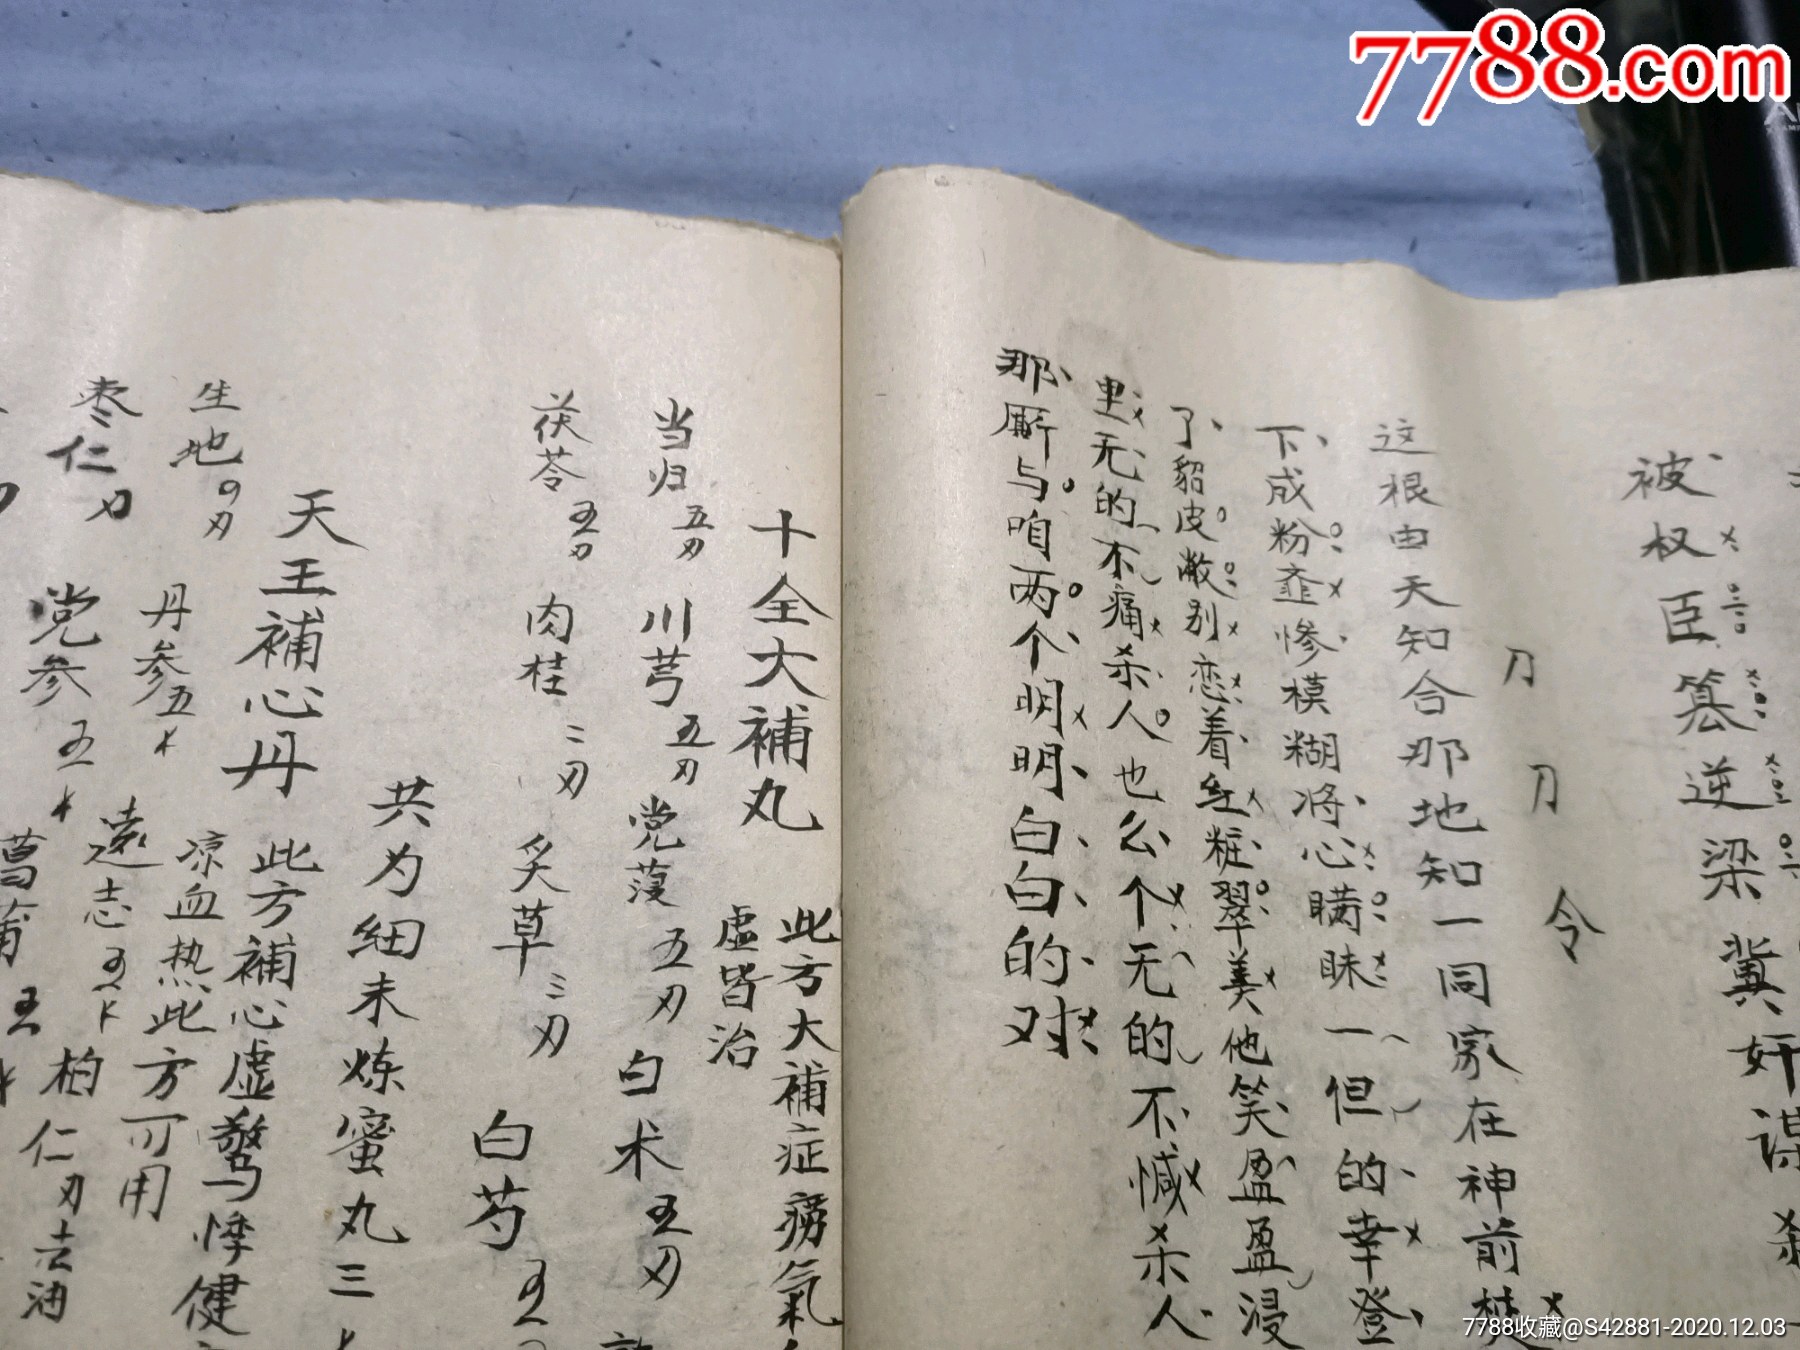 7788.com
被权臣篡逆梁冀奸谋杀
刀刀令
这根由天知合那地知一同家在神前焚
下成粉虀惨模糊将心瞒昧一但的幸登
了貂皮敝别恋着红粧翠美他笑盈盈浸
里无的不痛杀人也么个无的不憾杀人
那厮与咱两个明明白白的对
十全大補丸
此方大補症痨氣
虚皆治
当归五刃 川芎五刃 党蓡五刃 白术五刃
茯苓五刃 肉桂二刃 炙草三刃 白芍五
共为细末炼蜜丸三
天王補心丹
此方補心虚驚悸健
凉血热此方可用
生地 丹参五
枣仁刃 党参五 遠志五 柏仁刃去油
菖蒲五
7788收藏@S42881-2020.12.03